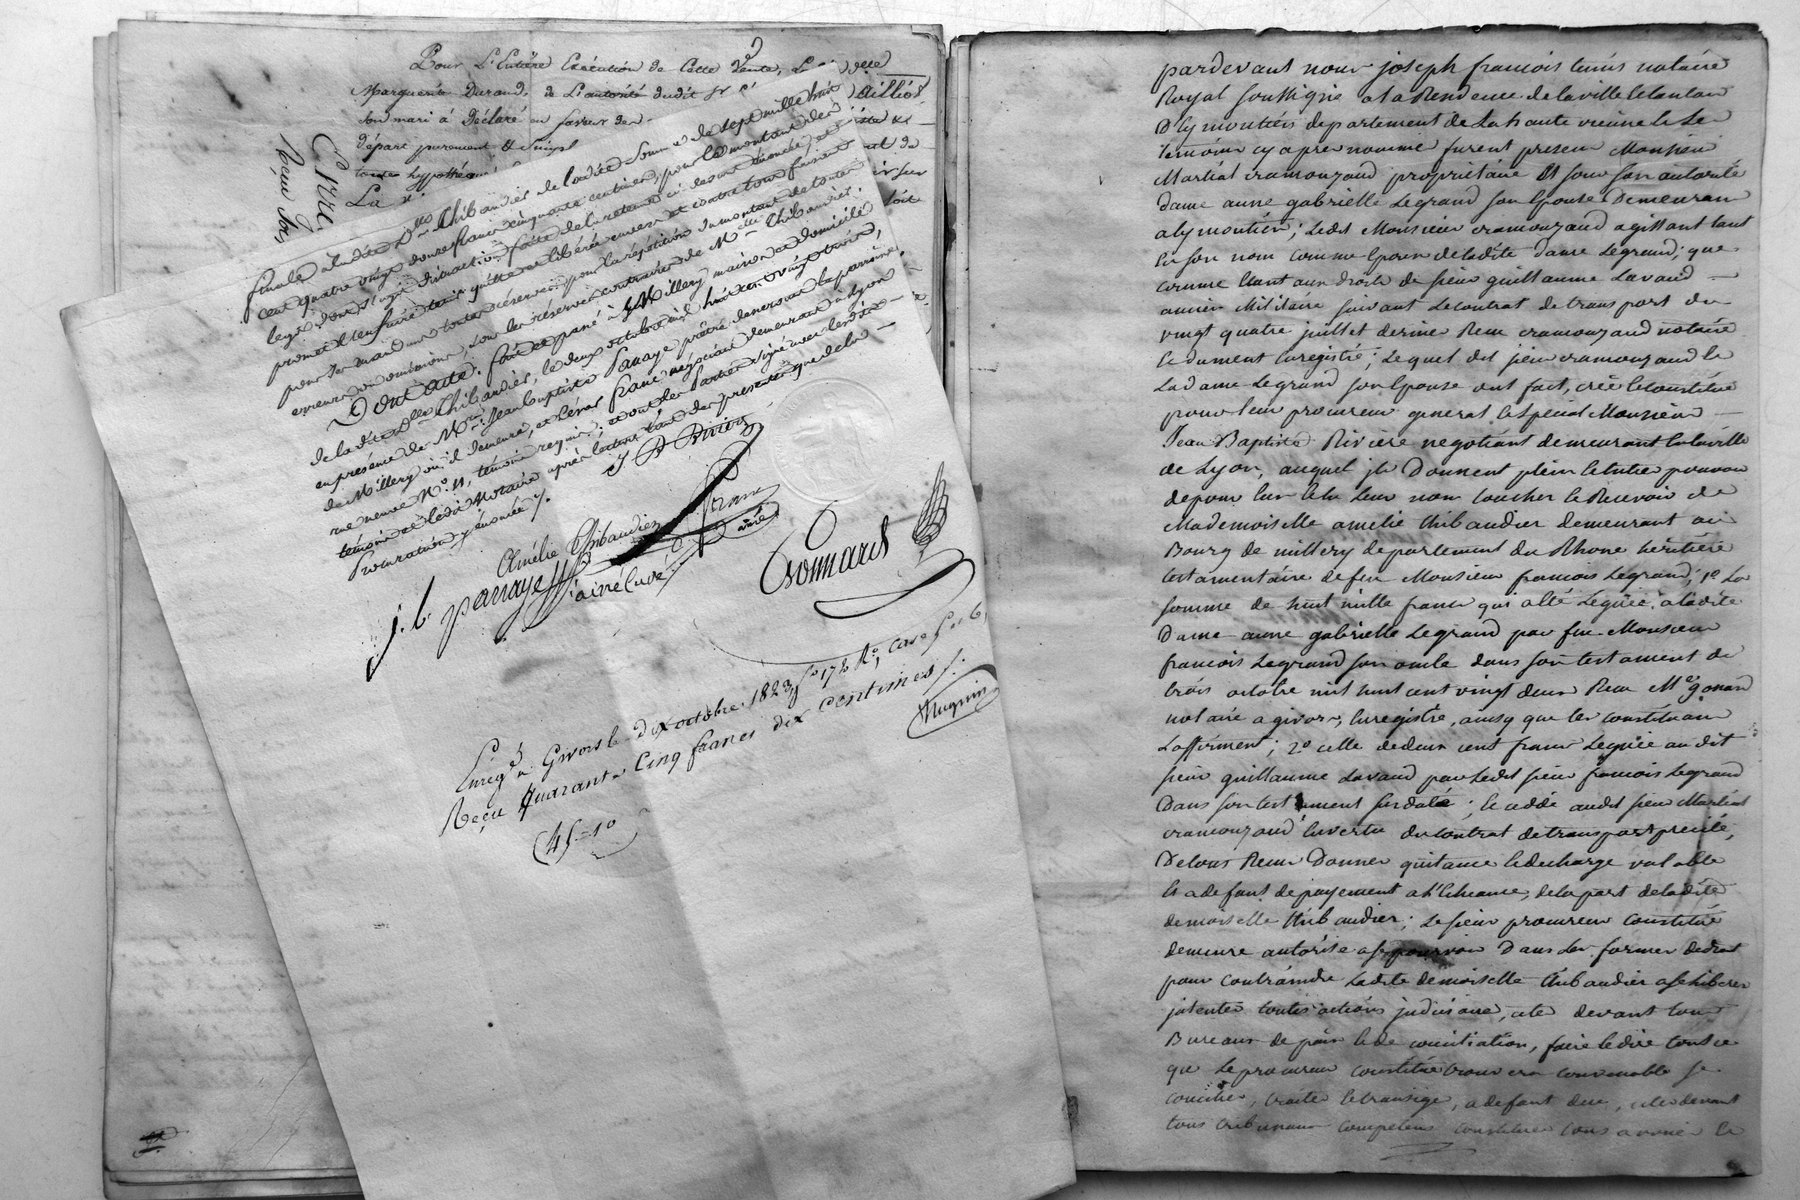 Pour L'Entière Exécution de Cette Vente, L
Marguerite Durand, de L'autorité dudit Sr
son mari à Déclaré en faveur de
départ purement & Simpl
toute hypothèque
La
Reçu
finale à ladite Dlle Thibaudier de ladite Somme de Sept mille huit
cent quatre vingt douze francs cinquante centimes, pour le montant des
legs dont s'agit, distraction faite de la retenue ci dessus énoncée, et
promet l'en faire tenir quitte et libérée envers et contre tous
pour Sr mand
erreurs ou omissions, sous les réserves contraires de Mlle Thibaudier.
Dont acte. fait et passé à Millery maison et domicile
de ladite Dlle Thibaudier, le deux octobre mil huit cent vingt trois,
en présence de Mrs Jean baptiste Panaye prêtre desservant la paroisse
de Millery où il demeure, et Cézar franc négociant demeurant à Lyon
rue neuve No. 11, témoins requis; et ont les parties signé avec lesdits
témoins et ledit Notaire après lecture tant des présentes que de la
Procuration y énoncée.
J B Rivière
Amélie Thibaudier
franc
j. b. panaye
Enregé à Givors le dix octobre 1823 fo 172 Ro, Case 5 et 6,
Reçu quarante Cinq francs dix centimes
(45=10
pardevant nous joseph francois tenis notaire
Royal soussigné a la Residence de la ville et canton
D'eymoutiers departement de la haute vienne et les
temoins cy apres nommé furent present Monsieur
Martial cramouzaud propriétaire Et sous son autorité
dame anne gabrielle Legrand son Epouse Demeuran
a eymoutiers; Ledit Monsieur cramouzaud agissant tant
En son nom comme Epoux de ladite dame Legrand; que
comme Etant aux droits de sieur guillaume Lavaud
ancien Militaire suivant Le contrat de transport du
vingt quatre juillet dernier Reçu cramouzaud notaire
et dument Enregistré; Lequel dit sieur cramouzaud et
La dame Legrand son Epouse ont fait, créé et constitué
pour leur procureur general et special Monsieur
Jean Baptiste Rivière negotiant demeurant en la ville
de Lyon, auquel ils Donnent plein et entier pouvoir
de pour Eux et en Leur nom toucher et Recevoir de
Mademoiselle amelie thibaudier demeurant au
Bourg de millery departement du Rhone heritière
testamentaire de feu Monsieur francois Legrand; 1o La
somme de huit mille francs qui a Eté Leguée a ladite
Dame anne gabrielle Legrand par feu Monsieur
francois Legrand son oncle dans son testament du
trois octobre mil huit cent vingt deux Reçu Me gonard
notaire a givors, Enregistré, ainsy que les constituans
L'affirment; 2o celle de deux cent francs Leguée au dit
sieur guillaume Lavaud par Ledit sieur francois Legrand
Dans son testament susdaté; et cédée audit sieur Martial
cramouzaud En vertu du contrat de transport precité,
De tous Reçus Donner quitance et decharge valable
Et a defaut de payement a L'Echeance, de la part de ladite
demoiselle thibaudier; Le sieur procureur constitué
demeure autorisé a se pourvoir Dans les formes de droit
pour contraindre Ladite demoiselle thibaudier a se liberer
jntenter toutes actions judiciaire, citer devant tous
Bureaux de paix et de conciliation, faire et dire tout ce
que Le procureur constitué trouvera convenable se
concilier, traiter et transiger, a defaut de ce, citer devant
tous tribunaux competens constituer tous avoués et